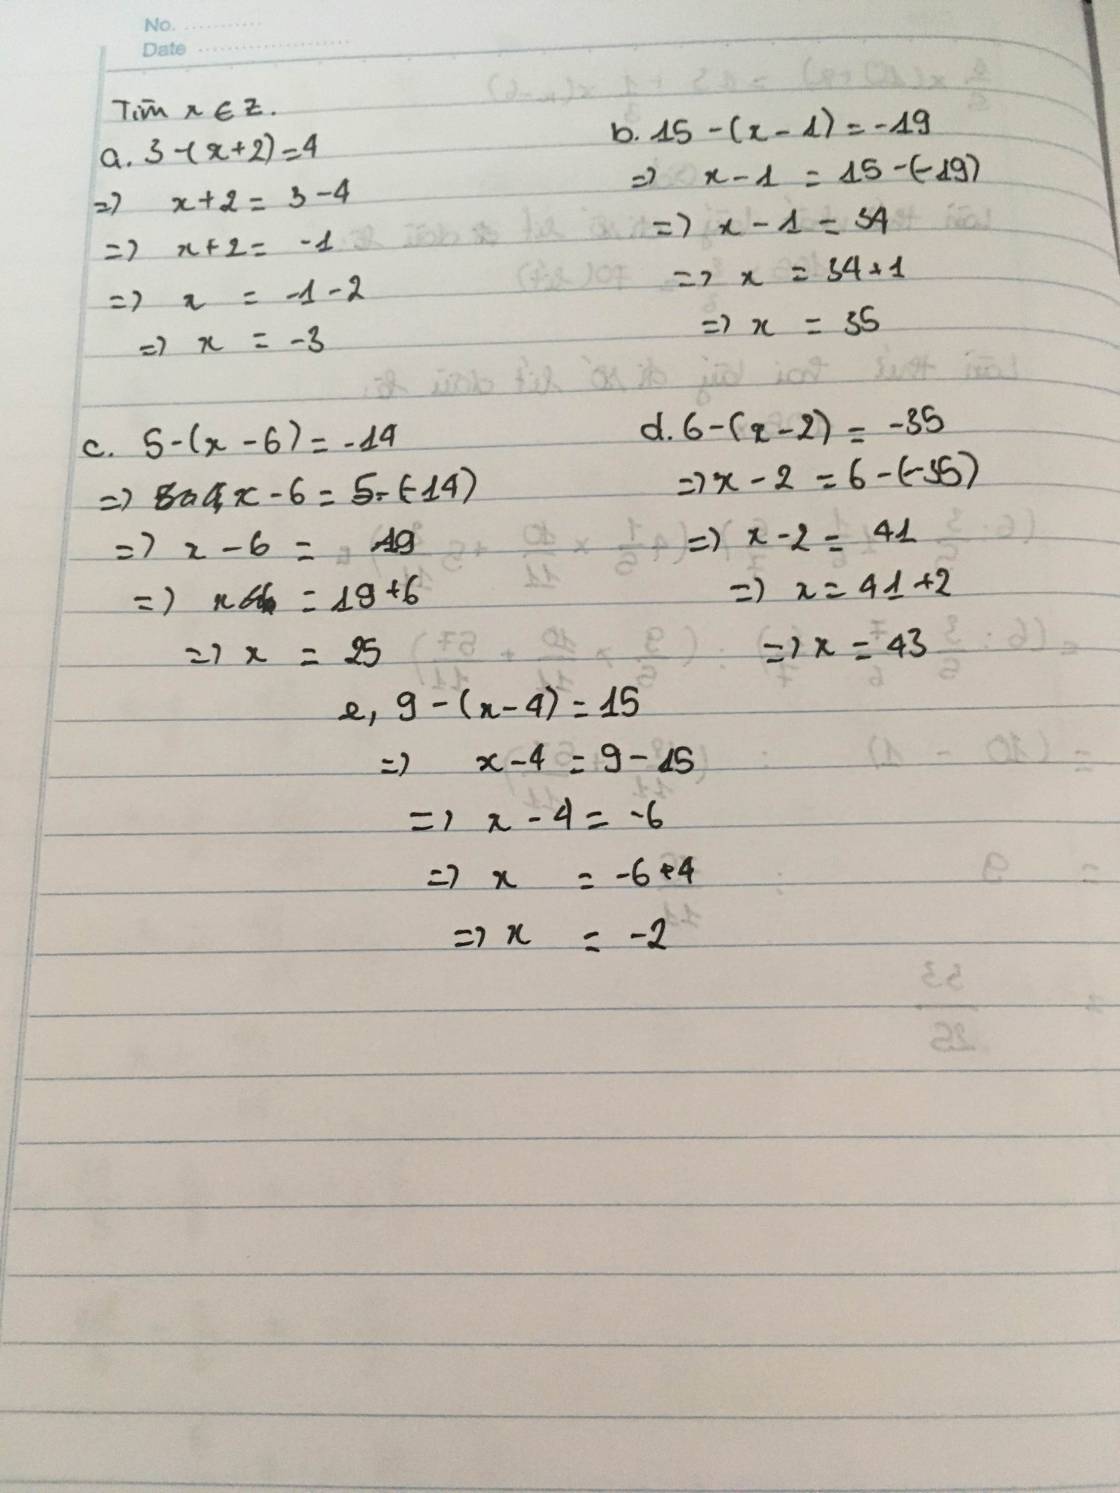 No.
Date
Tìm x ∈ Z.
a. 3-(x+2)=4
=> x+2 = 3-4
=> x+2 = -1
=> x = -1-2
=> x = -3
b. 15-(x-1)=-19
=> x-1 = 15-(-19)
=> x-1 = 34
=> x = 34+1
=> x = 35
c. 5-(x-6)=-14
=> x-6 = 5-(-14)
=> x-6 = 19
=> x = 19+6
=> x = 25
d. 6-(x-2) = -35
=> x-2 = 6-(-35)
=> x-2 = 41
=> x = 41+2
=> x = 43
e, 9-(x-4)=15
=> x-4 = 9-15
=> x-4 = -6
=> x = -6+4
=> x = -2